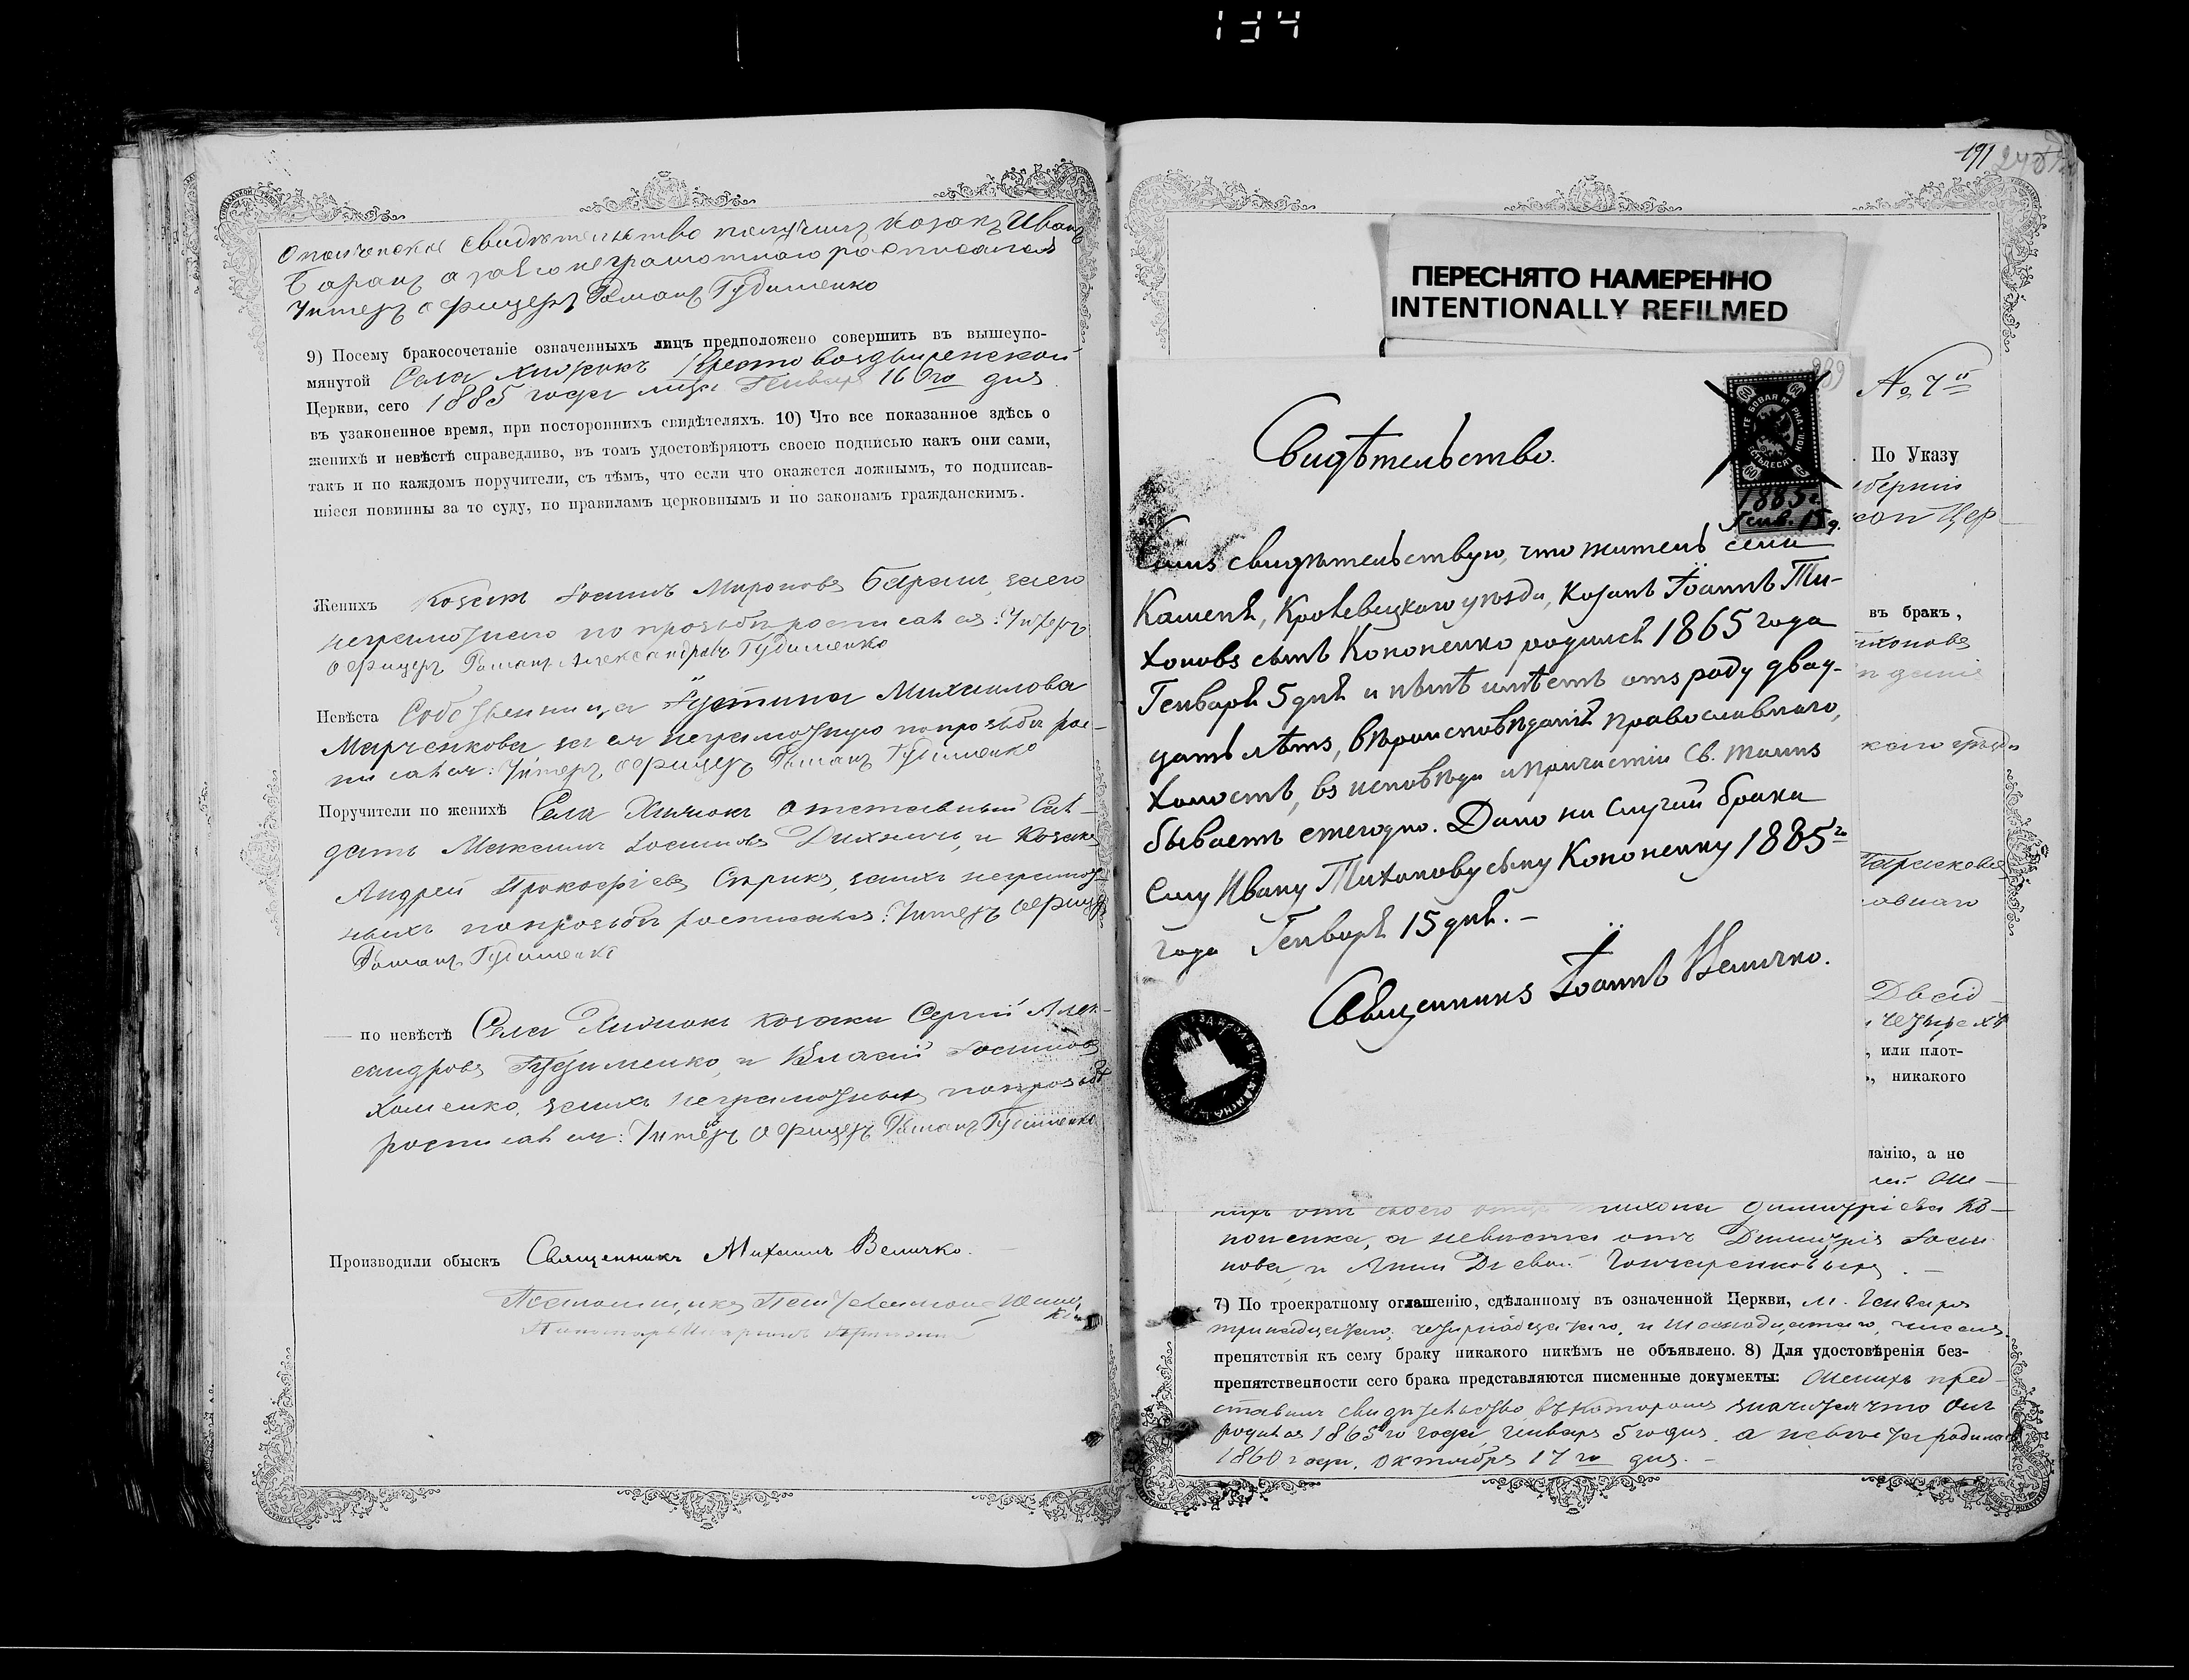 134
Ополченское свидетельство получилъ козакъ Иванъ
Баранъ а за его неграмотнаго росписался
Унтеръ офицеръ Романъ Гудименко
9) Посему бракосочетаніе означенныхъ лицъ предположено совершить въ вышеупо-
мянутой Села Хижокъ Крестовоздвиженской
Церкви, сего 1885 года м-ца Генваря 16 го дня
въ узаконенное время, при постороннихъ свидѣтеляхъ. 10) Что все показанное здѣсь о
женихѣ и невѣстѣ справедливо, въ томъ удостовѣряютъ своею подписью какъ они сами,
такъ и по каждомъ поручители, съ тѣмъ, что если что окажется ложнымъ, то подписав-
шіеся повинны за то суду, по правиламъ церковнымъ и по законамъ гражданскимъ.
Женихъ Козакъ Іоаннъ Мироновъ Баранъ, за его
неграмотнаго по прозьбѣ росписався: Унтеръ
офицеръ Романъ Александровъ Гудименко
Невѣста Іустина Михаилова
Марченкова за ея неграмотную по прозьбѣ рос-
писався: Унтеръ офицеръ Романъ Гудименко
Поручители по женихѣ Села Хижокъ отставный Сол-
датъ Максимъ Іоанновъ и Козакъ
Андрей Прокофіевъ за ихъ неграмот-
ныхъ по прозьбѣ росписався: Унтеръ офицеръ
Романъ Гудименко
— по невѣстѣ Села Хижокъ козаки Сергій Алек-
сандровъ Гудименко, и Власій Іоанновъ
Хоменко, за ихъ неграмотныхъ по прозьбѣ
росписався: Унтеръ офицеръ Романъ Гудименко
Производили обыскъ Священникъ Михаилъ Величко.
191
ПЕРЕСНЯТО НАМЕРЕННО
INTENTIONALLY REFILMED
№ 7й
По Указу
въ бракъ,
или плот-
никакого
Свидѣтельство.
60
1885 г.
Генв. 15 д.
Симъ свидѣтельствую, что житель села
Каменя, Кролевецкого уѣзда, Козакъ Іоаннъ Ти-
хоновъ сынъ Кононенко родился 1865 года
Генваря 5 дня и нынѣ имѣетъ отъ роду двад-
цать лѣтъ, вѣроисповѣданія православнаго,
холостъ, въ исповѣди и причастіи Св. таинъ
бываетъ ежегодно. Дано на случай брака
ему Ивану Тихонову сыну Кононенку 1885 го
года Генваря 15 дня. —
Священникъ Іоаннъ Величко.
нихъ отъ своего отца Тихона Димитріева Ко-
ноненка, а невѣста отъ Димитрія Іоан-
нова, и Анны Гончаренковыхъ. —
7) По троекратному оглашенію, сдѣланному въ означенной Церкви, м. Генваря
тринадцатаго, четырнадцатаго, и числа
препятствія къ сему браку никакого никѣмъ не объявлено. 8) Для удостовѣренія без-
препятственности сего брака представляются писменные документы: Женихъ пред-
ставилъ свидѣтельство въ которомъ значится что онъ
родился 1865 го года, Генваря 5 го дня, а невѣста родилась
1860 года, октября 17 го дня. —